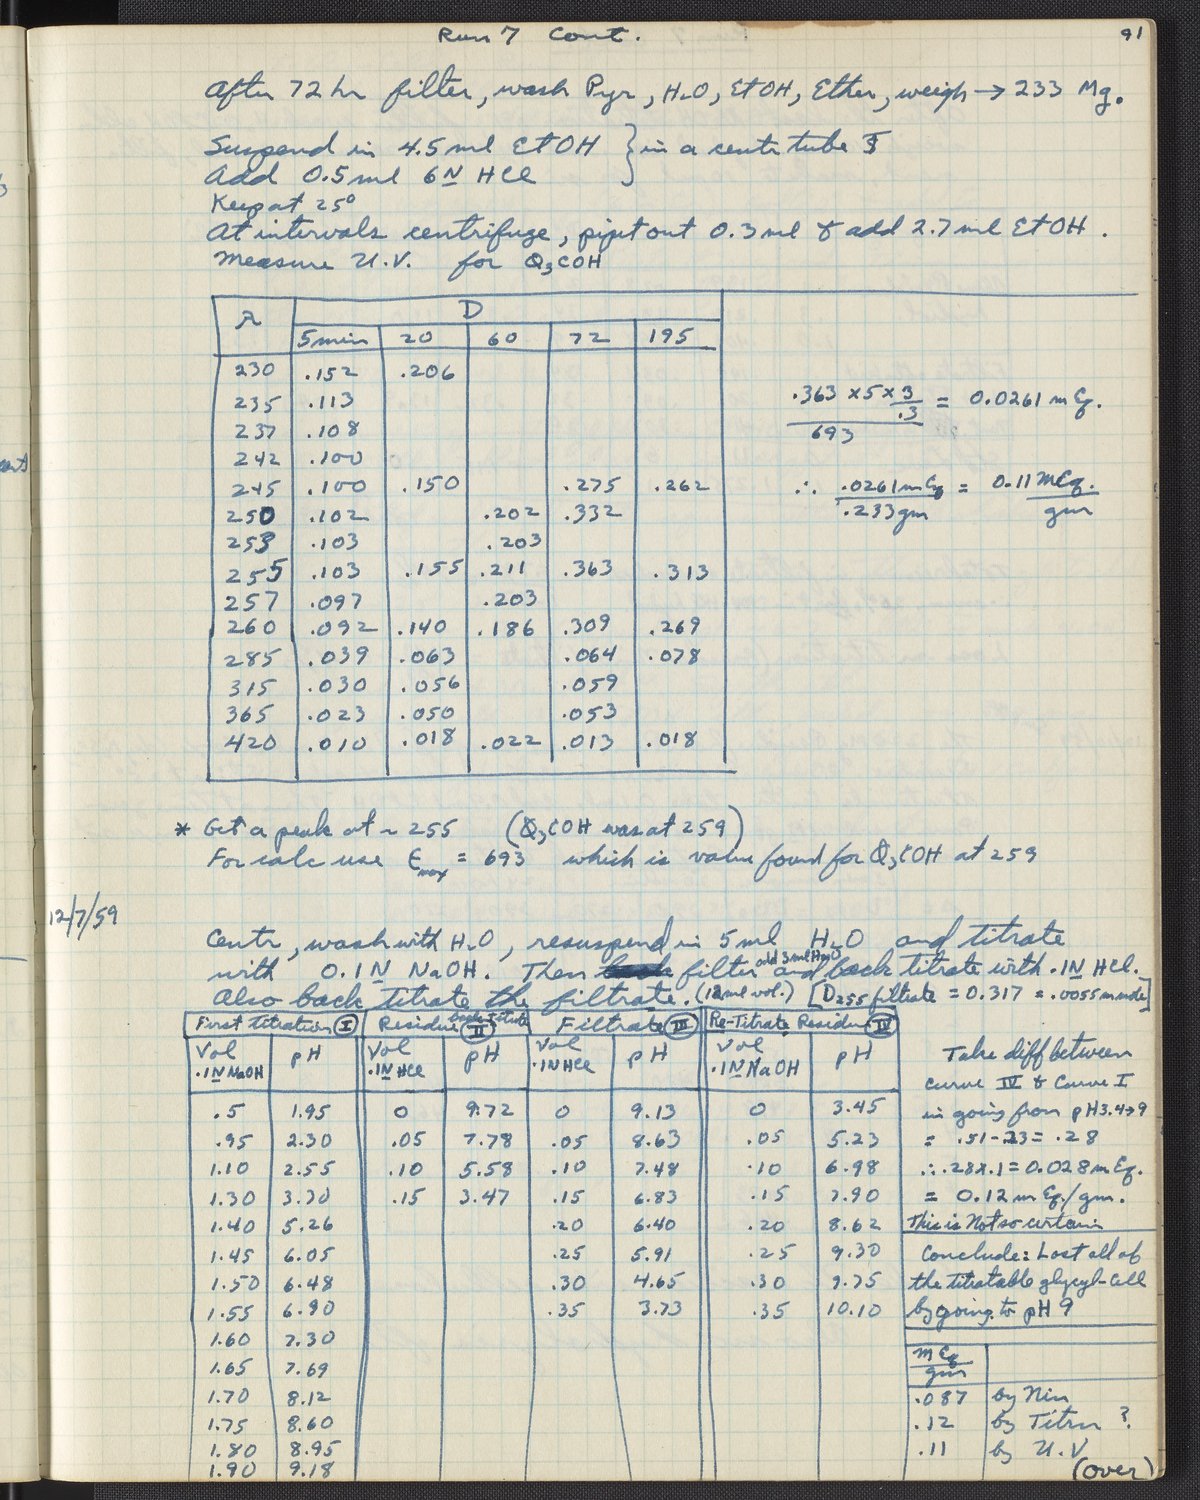 Run 7 Cont.
91
After 72 hr filter, wash Pyr, H2O, EtOH, Ether, weigh → 233 Mg.
Suspend in 4.5 ml EtOH } in a centr tube
Add 0.5 ml 6N HCl
Keep at 25°
At intervals centrifuge, pipet out 0.3 ml & add 2.7 ml EtOH.
Measure U.V. for Φ3COH
λ D
5 min 20 60 72 195
230 .152 .206
235 .113
237 .108
242 .100
245 .100 .150 .275 .262
250 .102 .202 .332
253 .103 .203
255 .103 .155 .211 .363 .313
257 .097 .203
260 .092 .140 .186 .309 .269
285 .039 .063 .064 .078
315 .030 .056 .059
365 .023 .050 .053
420 .010 .018 .022 .013 .018
.363 x 5 x 3/.3 / 693 = 0.0261 mEq.
∴ .0261 mEq / .233 gm = 0.11 mEq. / gm
* Get a peak at ~ 255 (Φ3COH was at 259)
For calc use ϵmax = 693 which is value found for Φ3COH at 259
12/7/59
Centr, wash with H2O, resuspend in 5 ml H2O and titrate
with 0.1N NaOH. Then filter add 3 ml H2O and back titrate with .1N HCl.
Also back titrate the filtrate. (12 ml vol.) [D255 filtrate = 0.317 = .0055 mmole]
First Titration I Residue back titrate II Filtrate III Re-Titrate Residue IV
Vol .1N NaOH pH Vol .1N HCl pH Vol .1N HCl pH Vol .1N NaOH pH
.5 1.95 0 9.72 0 9.13 0 3.45
.95 2.30 .05 7.78 .05 8.63 .05 5.23
1.10 2.55 .10 5.58 .10 7.48 .10 6.98
1.30 3.70 .15 3.47 .15 6.83 .15 7.90
1.40 5.26 .20 6.40 .20 8.62
1.45 6.05 .25 5.91 .25 9.30
1.50 6.48 .30 4.65 .30 9.75
1.55 6.90 .35 3.73 .35 10.10
1.60 7.30
1.65 7.69
1.70 8.12
1.75 8.60
1.80 8.95
1.90 9.18
Take diff between
curve IV & Curve I
in going from pH 3.4→9
= .51-.23 = .28
∴ .28 x .1 = 0.028 mEq.
= 0.12 mEq./gm.
This is Not so certain
Conclude: Lost all of
the titratable glycyl-cell
by going to pH 9
mEq/gm
.087 by Nin
.12 by Titrn ?
.11 by U.V.
(over)